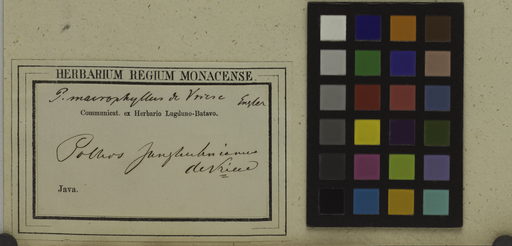 HERBARIUM REGIUM MONACENSE.
P. macrophyllus de Vriese Engler
Communicat. ex Herbario Lugduno-Batavo.
Pothos Junghuhnianus
de Vriese
Java.